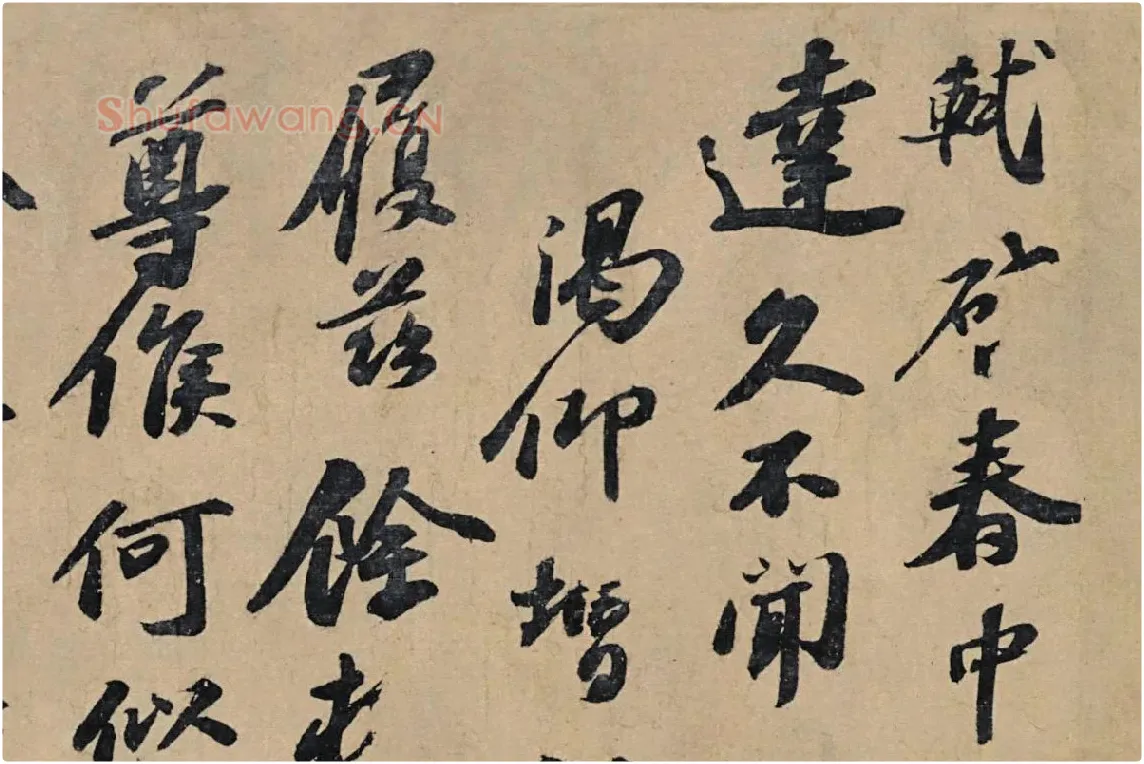 軾啓春中
達久不聞
渴仰增
履茲餘
尊候何似
Shufawang.CN